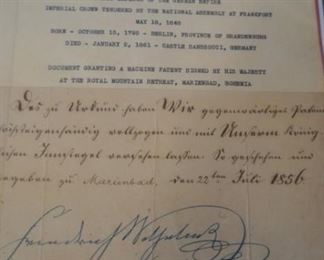 OF THE GERMAN EMPIRE
IMPERIAL CROWN TENDERED BY THE NATIONAL ASSEMBLY AT FRANKFORT
MAY 18, 1848
BORN - OCTOBER 15, 1795 - BERLIN, PROVINCE OF BRANDENBURG
DIED - JANUARY 2, 1861 - CASTLE SANSSOUCI, GERMANY
DOCUMENT GRANTING A MACHINE PATENT SIGNED BY HIS MAJESTY
AT THE ROYAL MOUNTAIN RETREAT, MARIENBAD, BOHEMIA
Des zu Urkund haben Wir gegenwärtiges Patent
höchsteigenhändig vollzogen und mit Unserm König-
lichen Innsiegel versehen lassen. So geschehen und
gegeben zu Marienbad, den 22ten Juli 1856
Friedrich Wilhelm